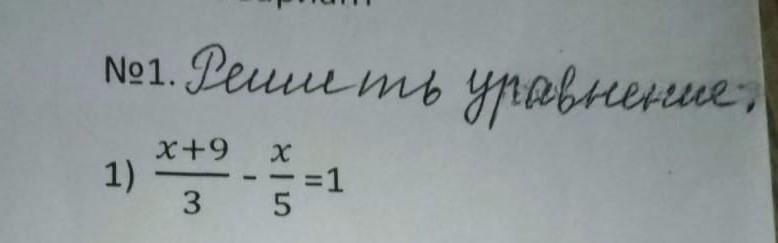 №1. Решить уравнение.
1) \frac{x+9}{3} - \frac{x}{5} =1